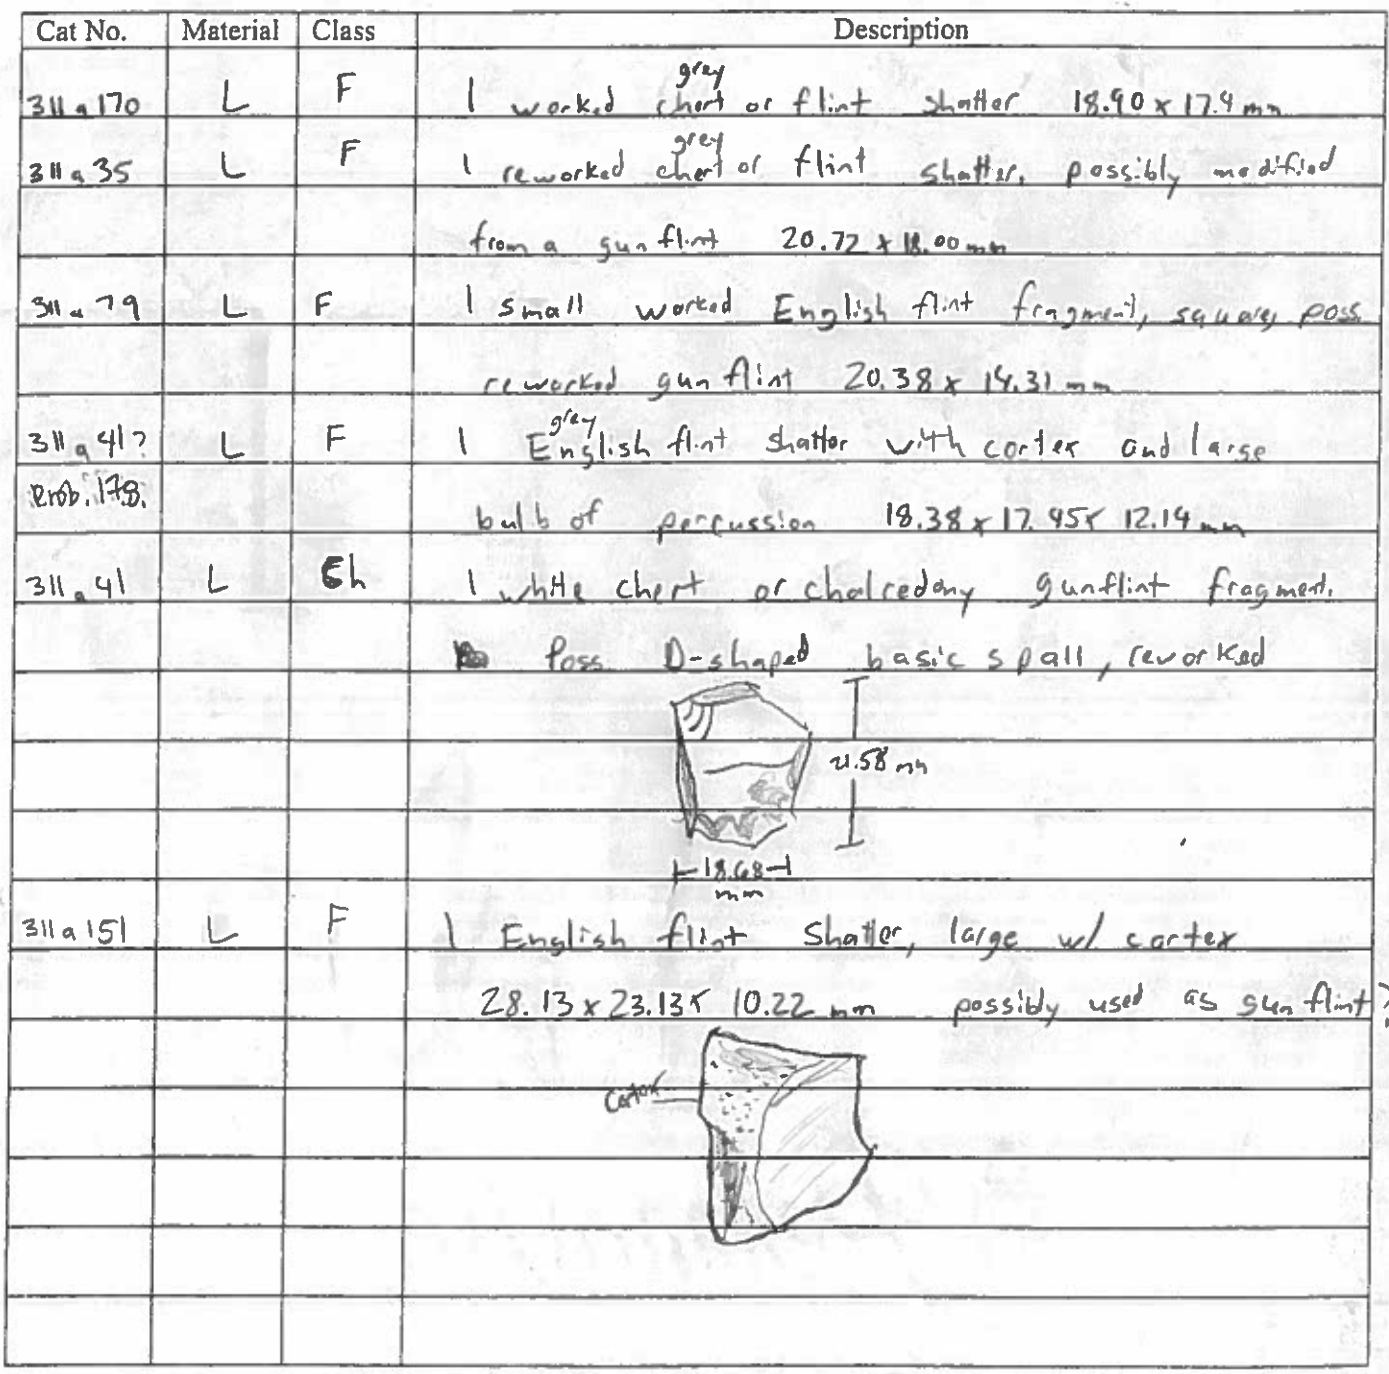 Cat No. Material Class Description
311a170 L F 1 worked grey chert or flint shatter 18.90 x 17.4 mm
311a35 L F 1 reworked grey chert or flint shatter, possibly modified
from a gun flint 20.72 x 18.00 mm
311a79 L F 1 small worked English flint fragment, square, poss.
reworked gun flint 20.38 x 14.31 mm
311a41? L F 1 grey English flint shatter with cortex and large
Prob. 178. bulb of percussion 18.38 x 17.45 x 12.14 mm
311a41 L Ch 1 white chert or chalcedony gunflint fragment.
Poss. D-shaped basic spall, reworked
21.58 mm
18.68
mm
311a151 L F 1 English flint Shatter, large w/ cortex
28.13 x 23.13 x 10.22 mm possibly used as gun flint?
Cortex